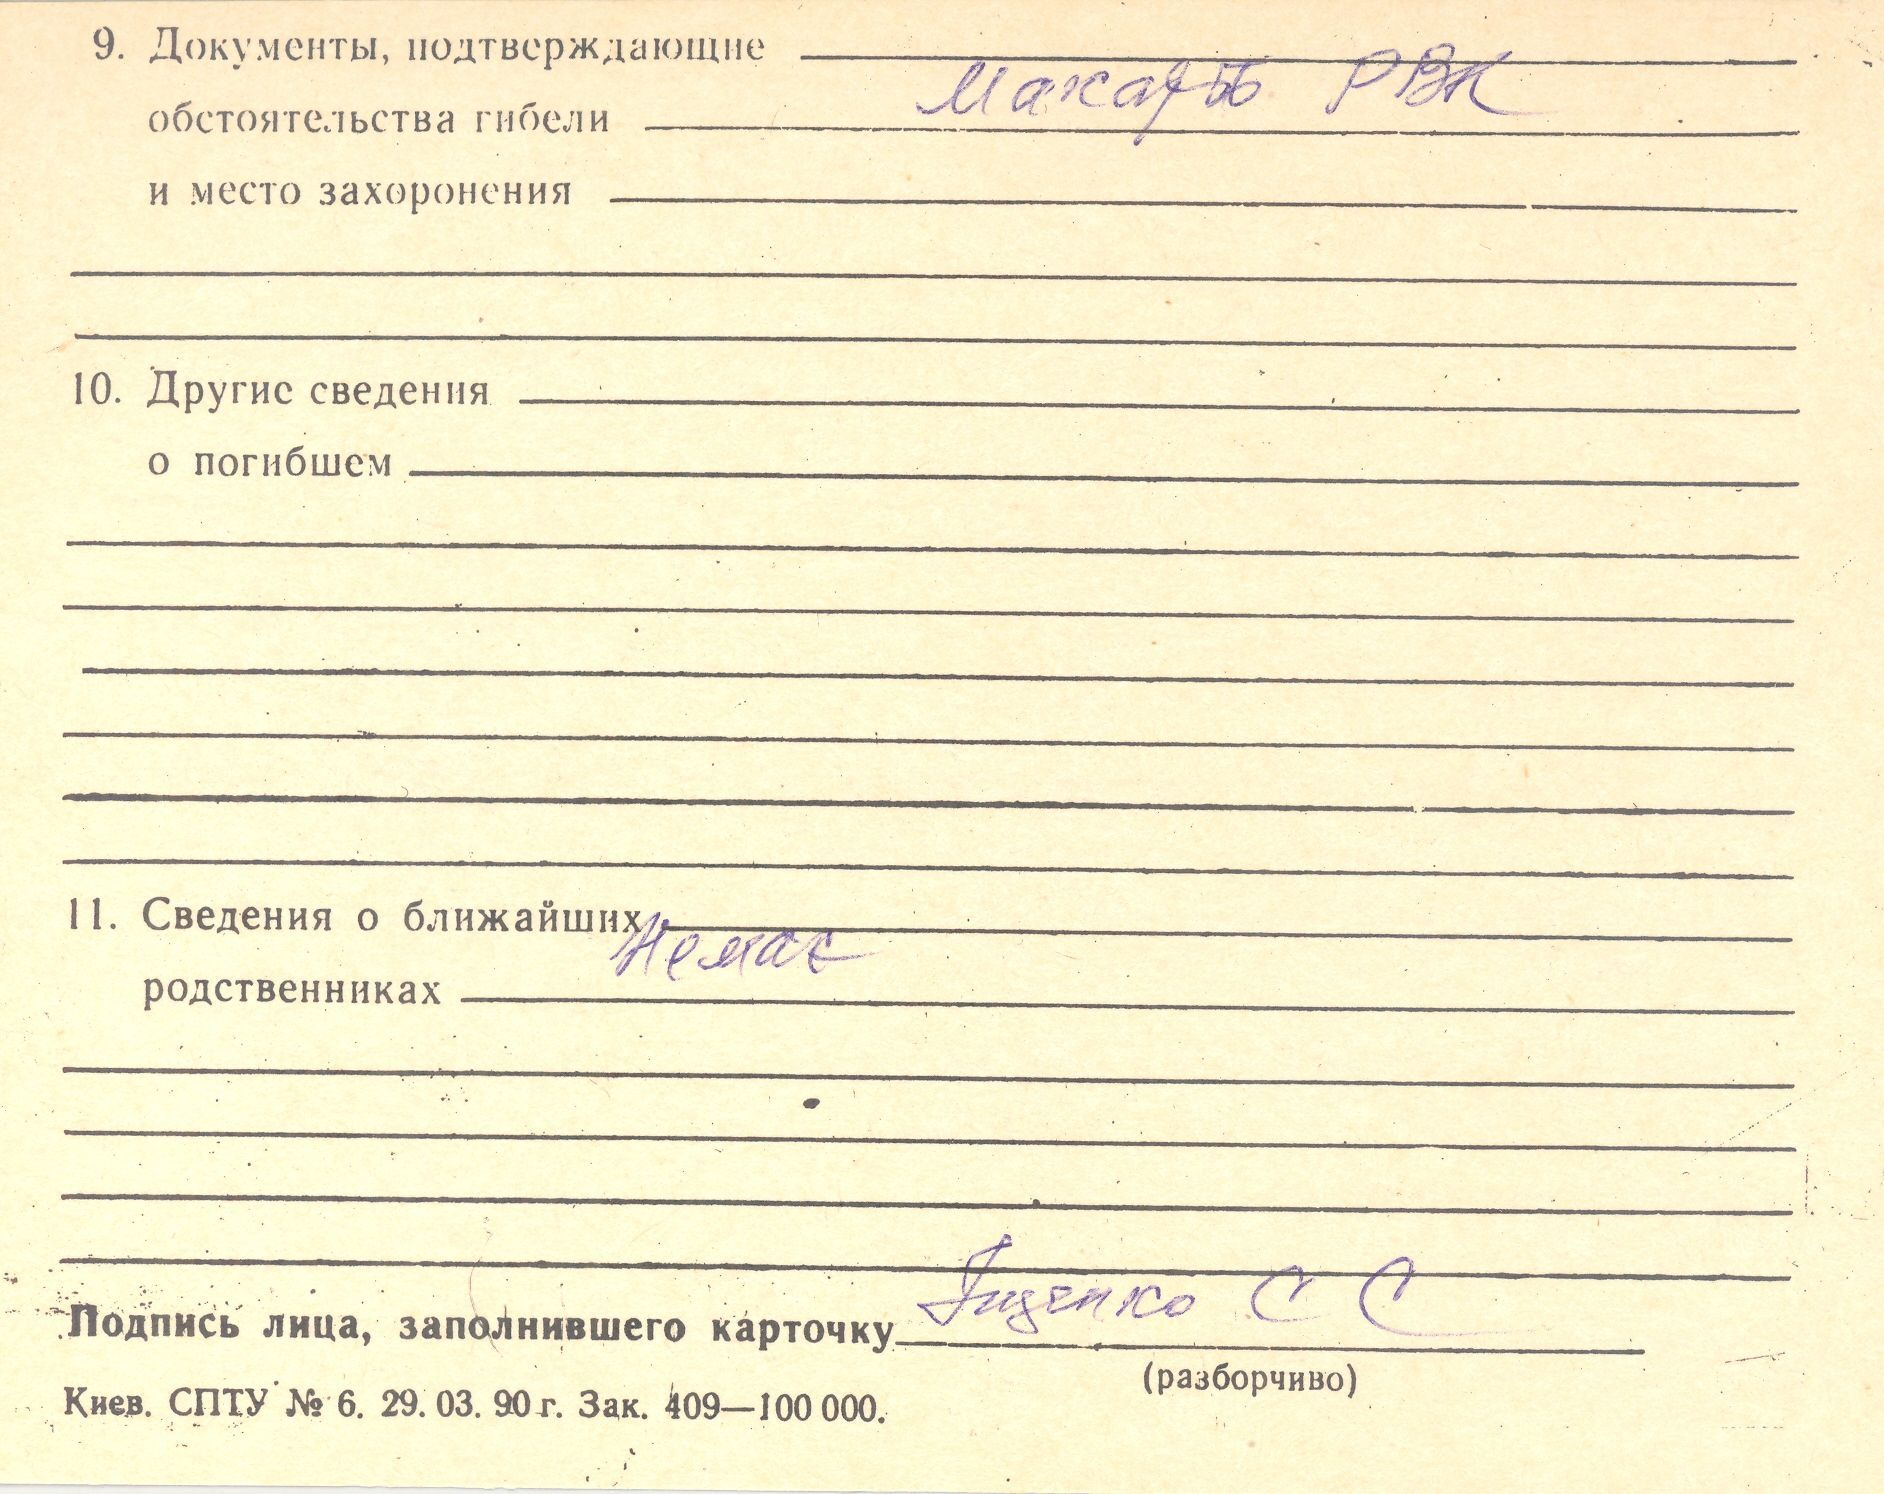 9. Документы, подтверждающие
обстоятельства гибели
РВК
и место захоронения
10. Другие сведения
о погибшем
11. Сведения о ближайших
Немає
родственниках
Подпись лица, заполнившего карточку Іщенко С С
(разборчиво)
Киев. СПТУ № 6. 29. 03. 90 г. Зак. 409—100 000.